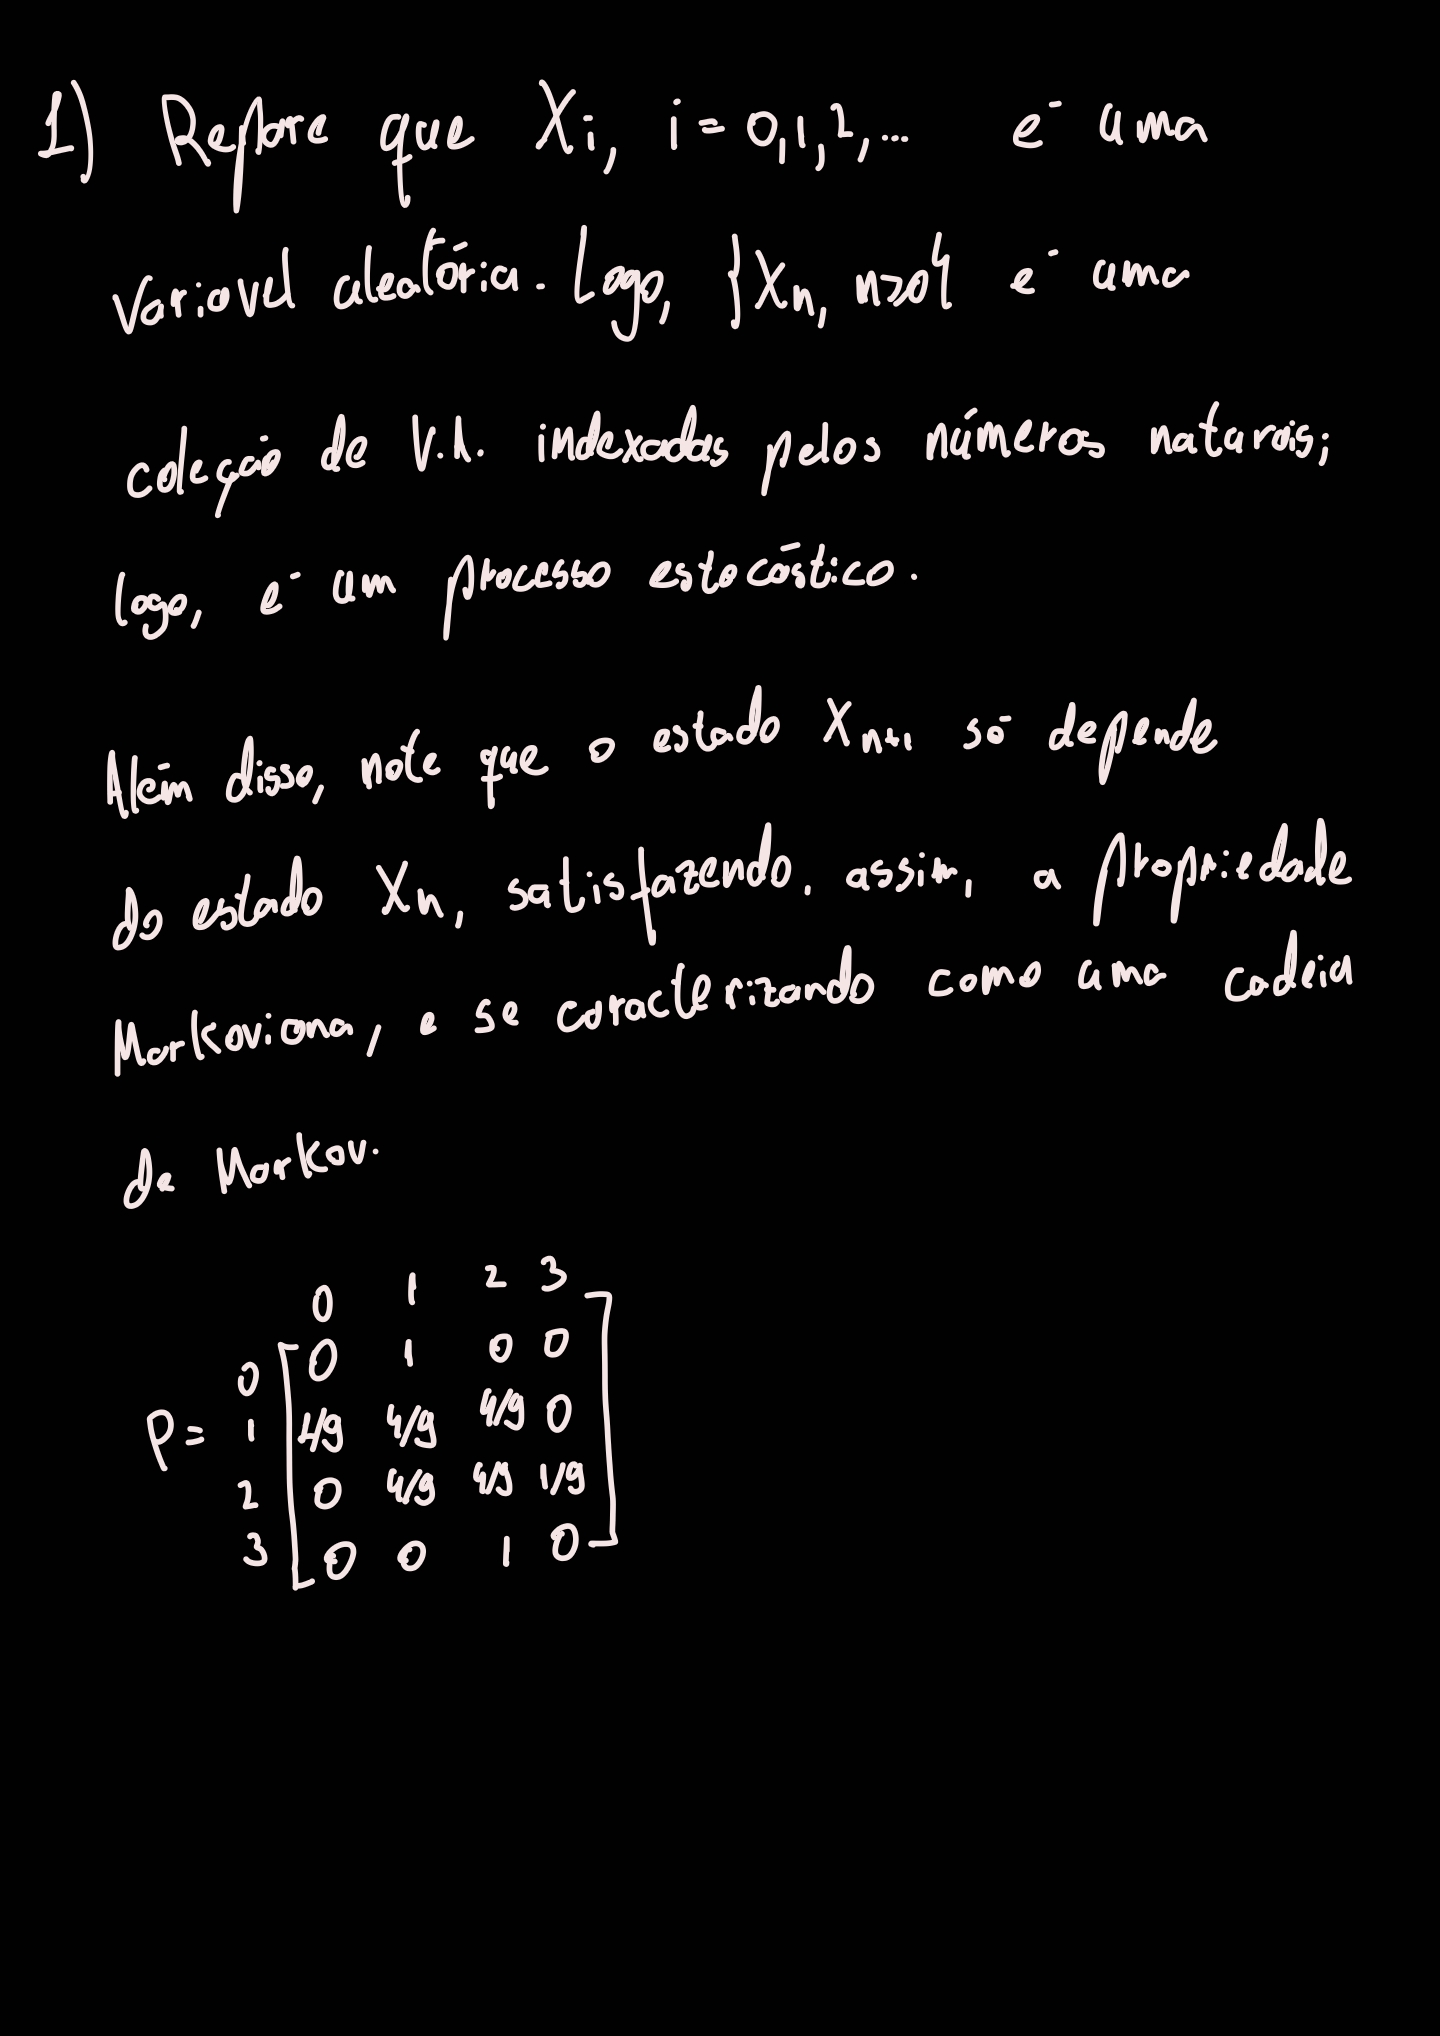 1) Repare que Xi, i = 0,1,2,... é uma
variavel aleatória. Logo, {Xn, n≥0} é uma
coleção de V.A. indexadas pelos números naturais;
logo, é um processo estocástico.
Além disso, note que o estado Xn+1 só depende
do estado Xn, satisfazendo, assim, a propriedade
Markoviana, e se caracterizando como uma cadeia
de Markov.
0 1 2 3
0 0 1 0 0
P = 1 1/9 4/9 4/9 0
2 0 4/9 4/9 1/9
3 0 0 1 0